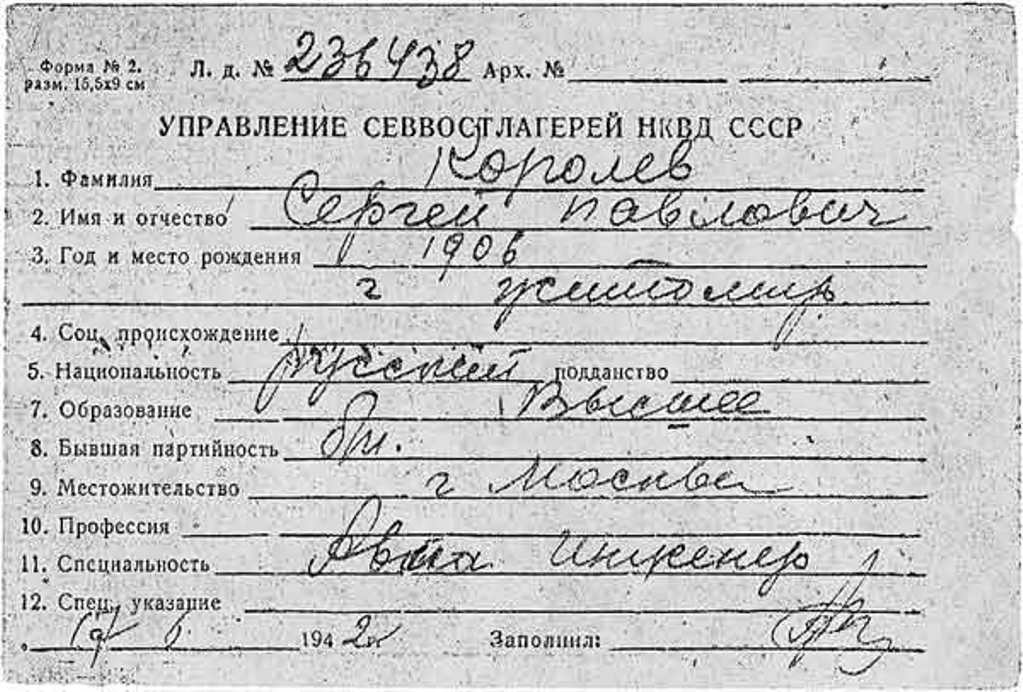 Форма № 2.
разм. 15,5х9 см
Л. д. № 236438 Арх. №
УПРАВЛЕНИЕ СЕВВОСТЛАГЕРЕЙ НКВД СССР
1. Фамилия Королев
2. Имя и отчество Сергей Павлович
3. Год и место рождения 1906
г Житомир
4. Соц. происхождение
5. Национальность русский подданство
7. Образование Высшее
8. Бывшая партийность бп.
9. Местожительство г Москва
10. Профессия
11. Специальность Авиа инженер
12. Спец. указание
1942 г Заполнил: